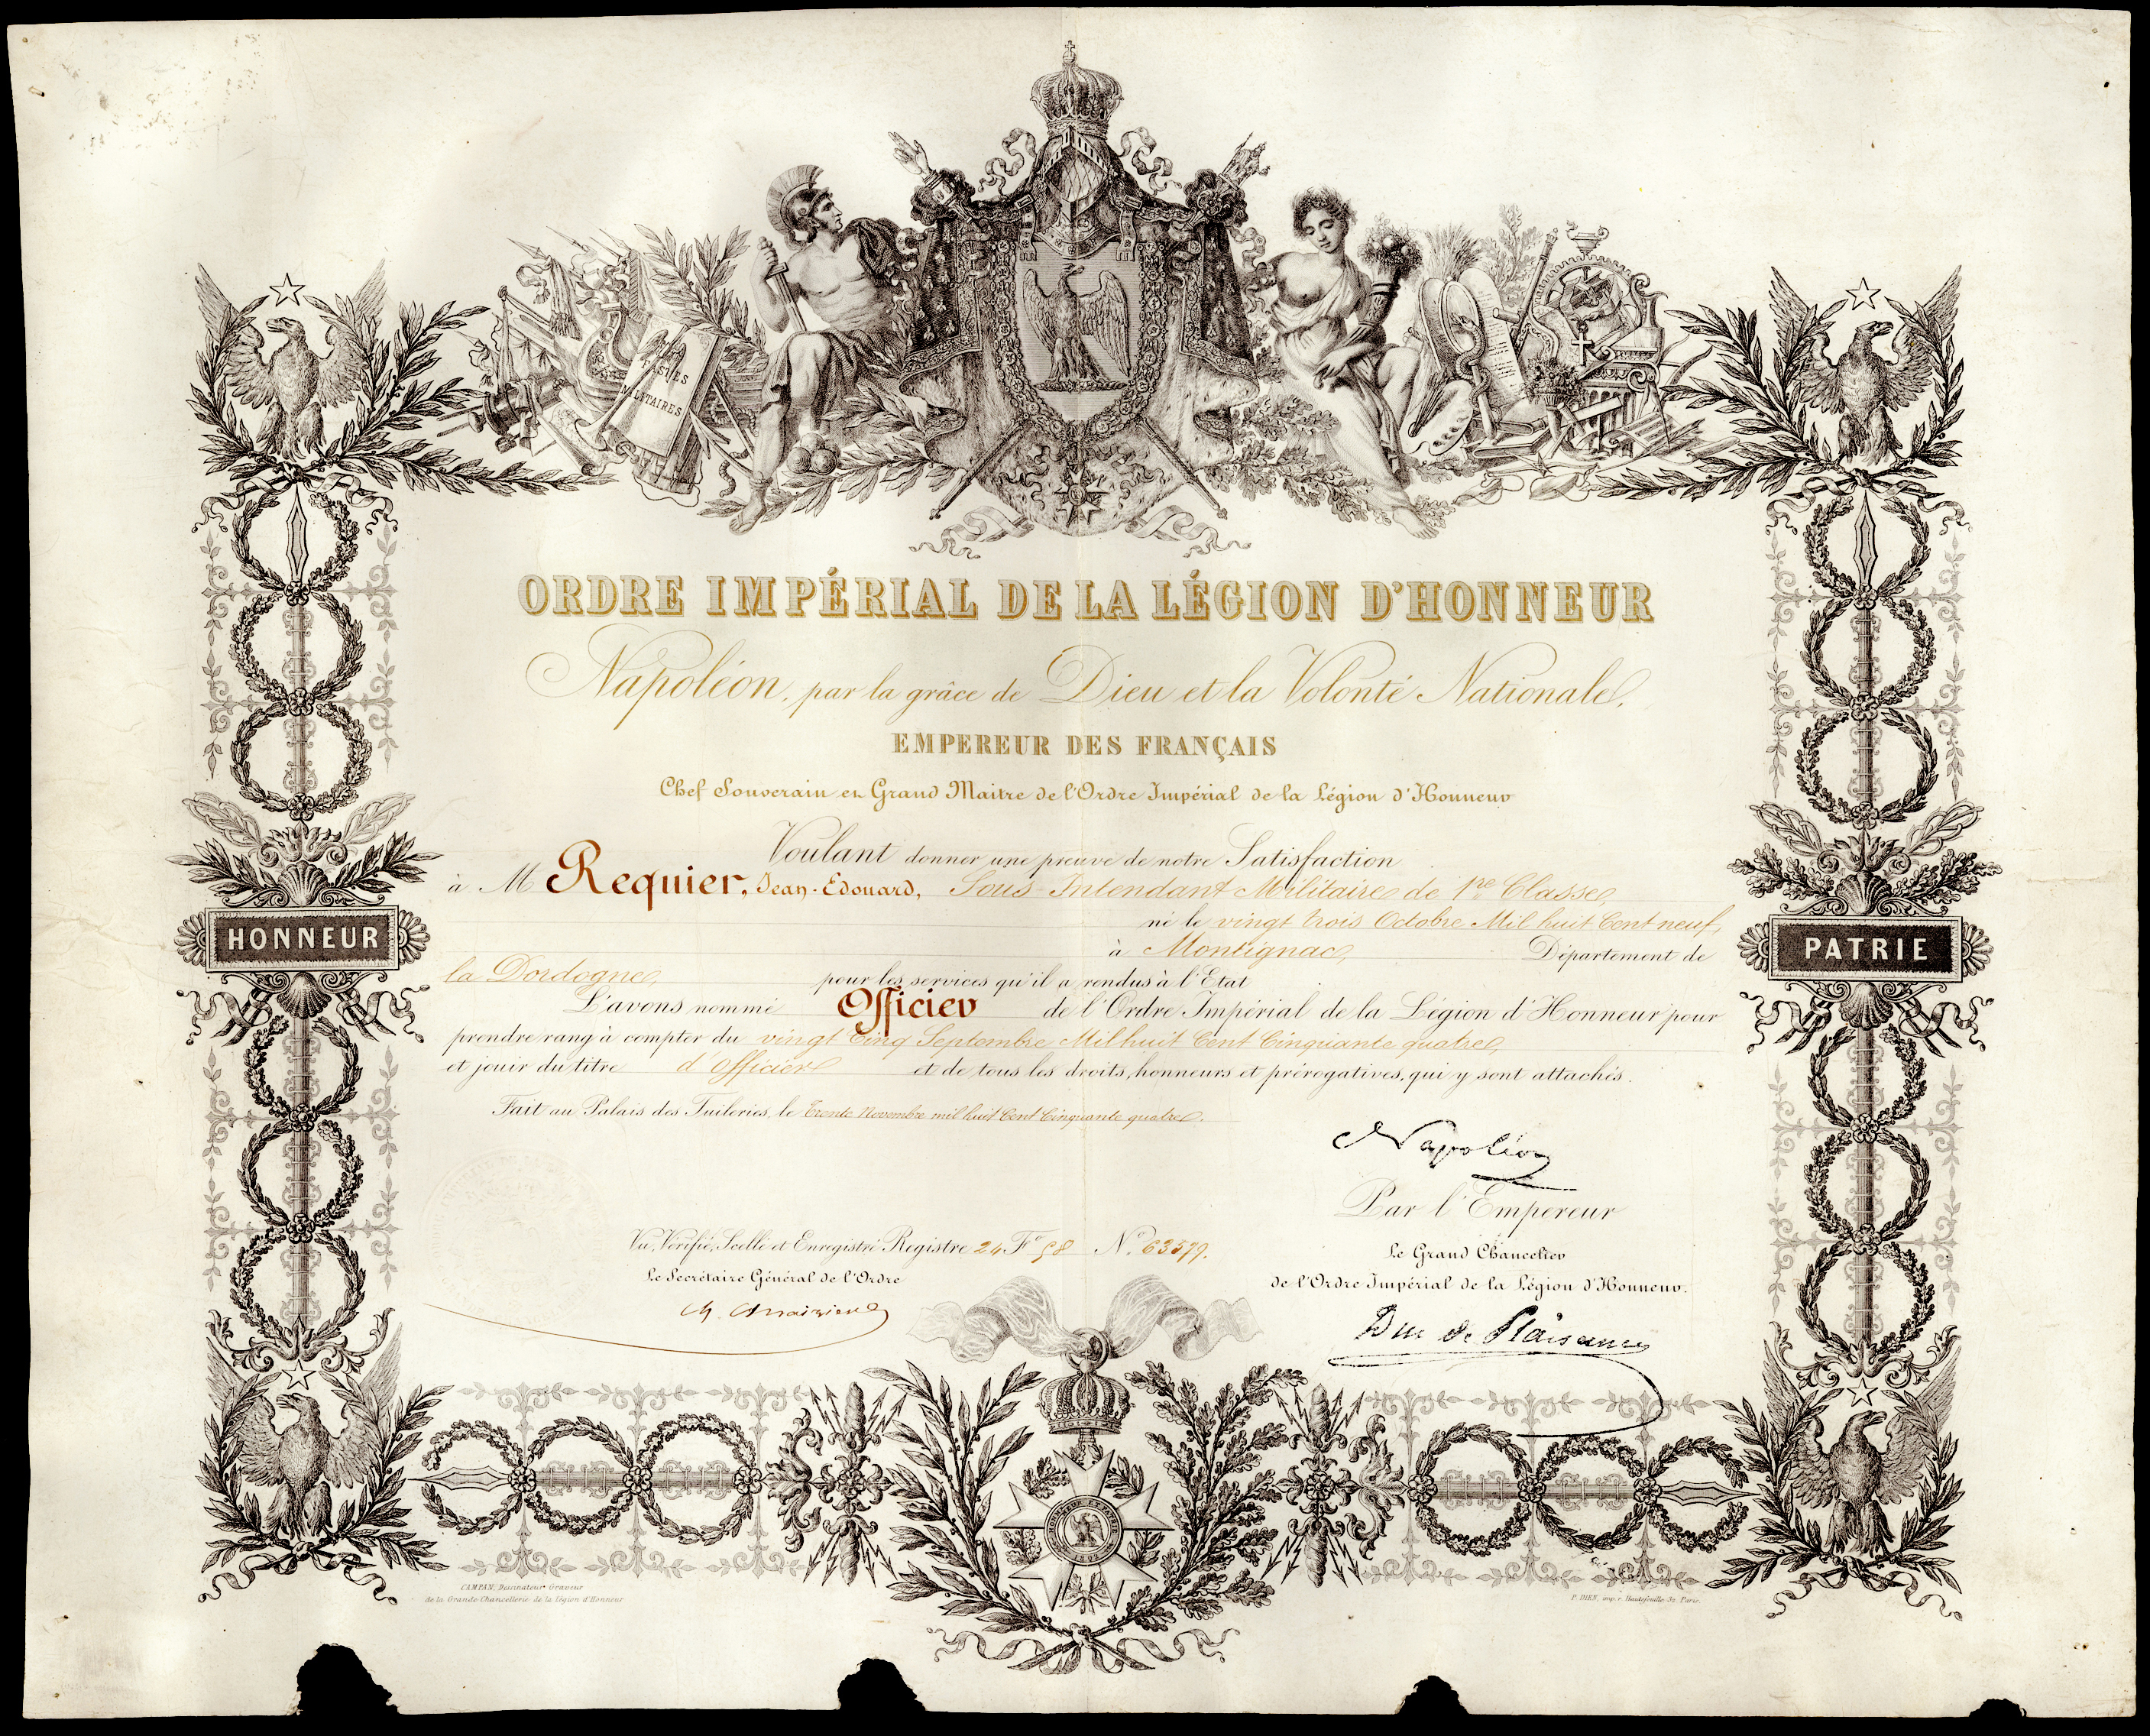 FASTES
MILITAIRES
ORDRE IMPÉRIAL DE LA LÉGION D'HONNEUR
Napoléon, par la grâce de Dieu et la Volonté Nationale,
EMPEREUR DES FRANÇAIS
Chef Souverain et Grand Maitre de l'Ordre Impérial de la Légion d'Honneur
Voulant donner une preuve de notre Satisfaction
à M Requier, Jean-Edouard, Sous-Intendant Militaire de 1re Classe,
né le vingt trois Octobre Mil huit Cent neuf,
à Montignac, Département de
la Dordogne, pour les services qu'il a rendus à l'Etat
L'avons nommé Officier de l'Ordre Impérial de la Légion d'Honneur pour
prendre rang à compter du vingt Cinq Septembre Mil huit Cent Cinquante quatre,
et jouir du titre d'Officier et de tous les droits, honneurs et prérogatives, qui y sont attachés.
Fait au Palais des Tuileries, le trente Novembre mil huit Cent Cinquante quatre.
HONNEUR
PATRIE
Napoléon
Par l'Empereur
Vu, Vérifié, Scellé et Enregistré Registre 24 F° 58 N° 63579.
Le Secrétaire Général de l'Ordre
Le Grand Chancelier
de l'Ordre Impérial de la Légion d'Honneur.
Duc de Plaisance
CAMPAN, Dessinateur Graveur
de la Grande Chancellerie de la légion d'Honneur
P. DIEN, imp. r. Hautefeuille 32 Paris